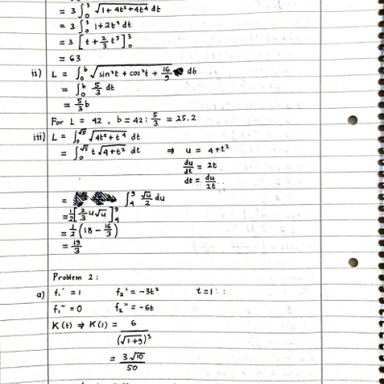 = 3 ∫₀³ √(1 + 4t² + 4t⁴) dt
= 3 ∫₀³ 1 + 2t² dt
= 3 [t + 2/3 t³]₀³
= 63
ii) L = ∫₀ᵇ √(sin²t + cos²t + 16/9) dt
= ∫₀ᵇ 5/3 dt
= 5/3 b
For L = 42, b = 42 : 5/3 = 25.2
iii) L = ∫₀^√5 √(4t² + t⁴) dt
= ∫₀^√5 t √(4 + t²) dt ⇒ u = 4 + t²
du/dt = 2t
dt = du/2t
= ∫₄⁹ √u/2 du
= 1/2 [2/3 u√u]₄⁹
= 1/2 (18 - 16/3)
= 19/3
Problem 2 :
a) f₁' = 1 f₂' = -3t² t = 1 :
f₁'' = 0 f₂'' = -6t
K(t) ⇒ K(1) = 6/(√(1+9))³
= 3√10/50